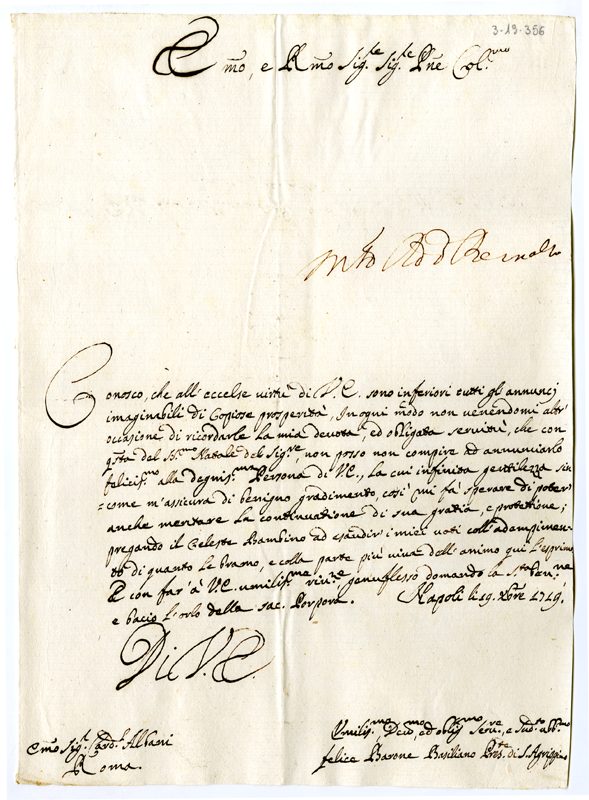 3-13-356
Emo, e Rmo Sig.re Sig.re Pne Col.mo
Conosco, che all' eccelse virtù di V.E. sono inferiori tutti gli annunci
imaginabili di Copiose prosperità, In ogni modo non venendomi altr'
occasione di ricordarle la mia devota, ed obligata servitù, che con
qsta del SS.mo Natale del Sig.re, non posso non compire ad annunciarlo
felicis.mo alla degnis.ma Persona di V.E., la cui infinita gentilezza sic
=come m'assicura di benigno gradimento, così mi fà sperare di poter
anche meritare la continuazione di sua gratia, e protetione;
pregando il Celeste Bambino ad esaudir i miei voti coll' adempimen
to di quanto le bramo, e colla parte più viva dell' animo qui l'esprimo
E con far' à V.E. umilis.me riv.ze, genuflesso domando la S.ta Ben.ne
e bacio l'orlo della sac. Porpora. Napoli li 19. Xbre 1719.
Di V.E.
Emo Sig.r Card.l Albani
Roma.
Umilis.mo, Dev.mo, ed oblig.mo Serv.re, e
felice Barone Basiliano Pres.te di S. Agrippino